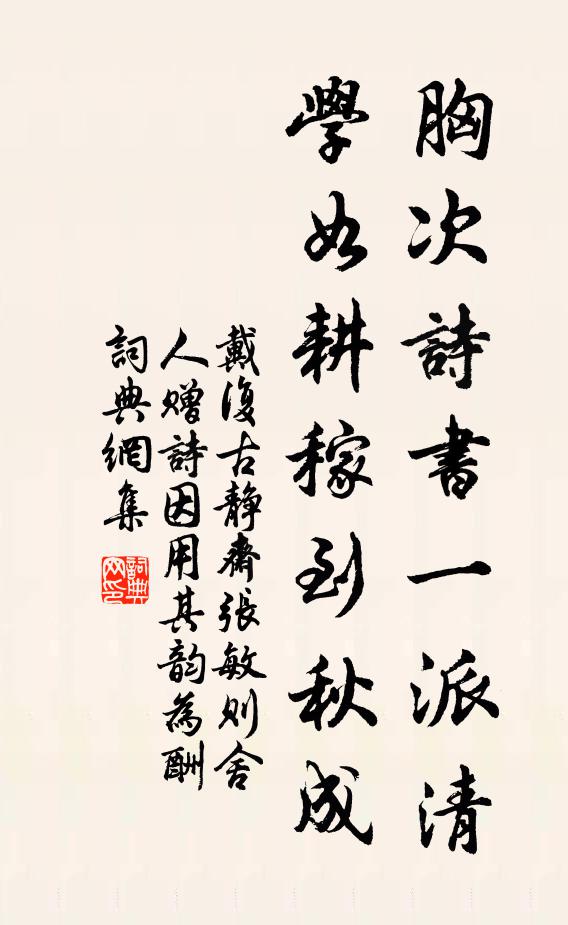 胸次詩書一派清
學如耕稼到秋成
戴復古靜齋張敏則舍
人贈詩因用其韵為酬
詞典網集
詞典网印